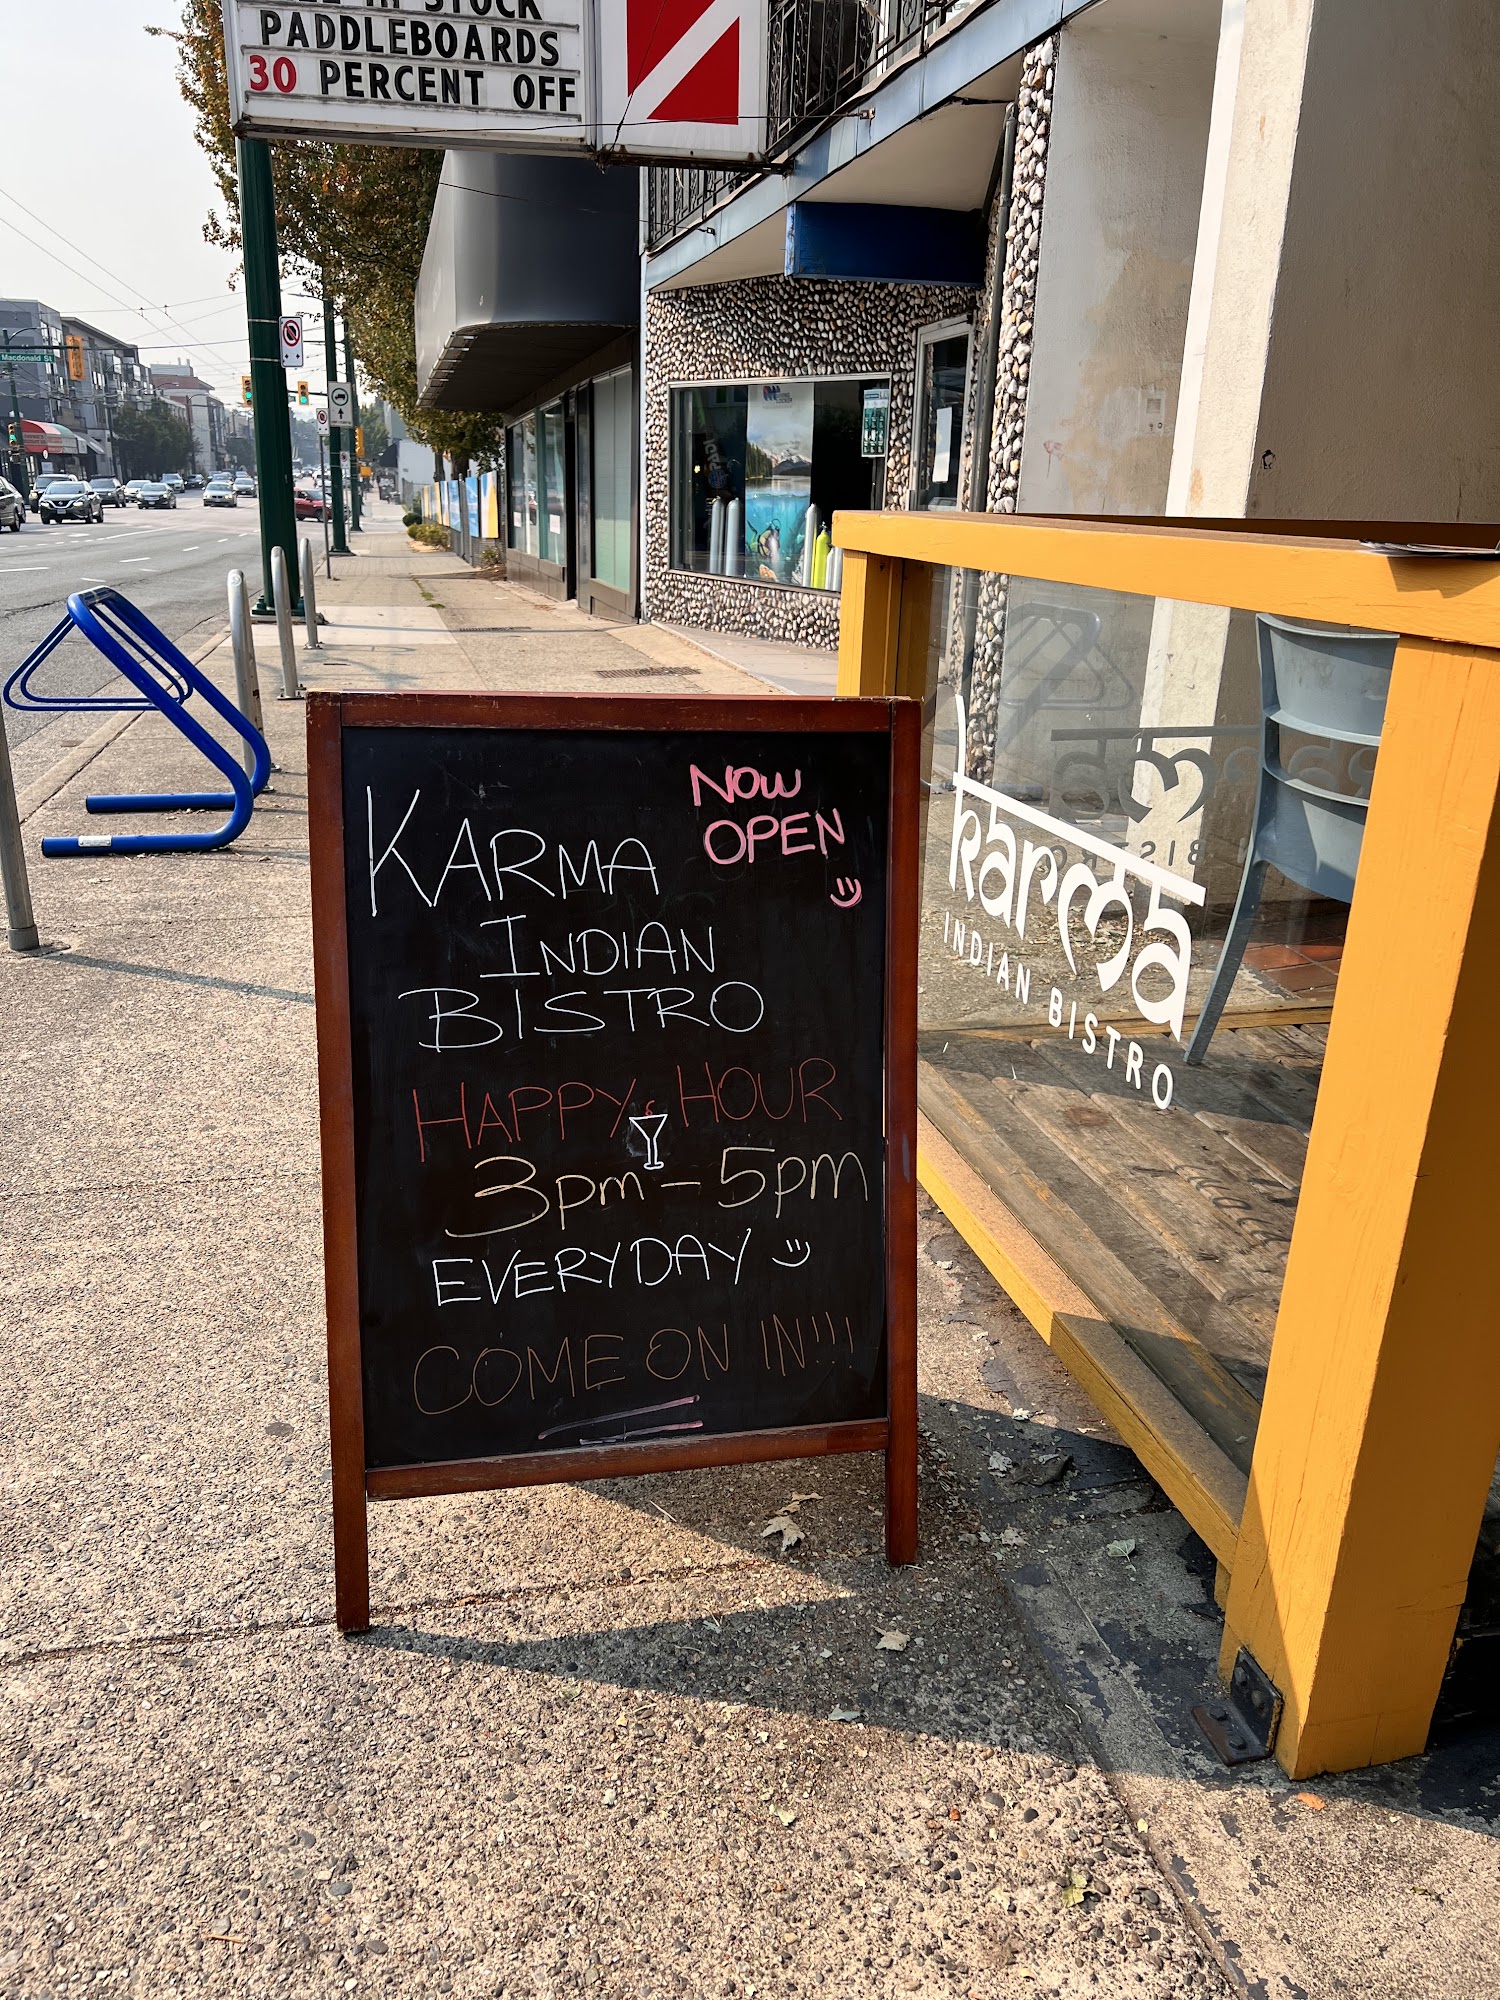 IN STOCK
PADDLEBOARDS
30 PERCENT OFF
Macdonald St
KARMA
NOW
OPEN
INDIAN
BISTRO
HAPPY HOUR
3pm - 5pm
EVERYDAY
COME ON IN!!!
karma
INDIAN BISTRO